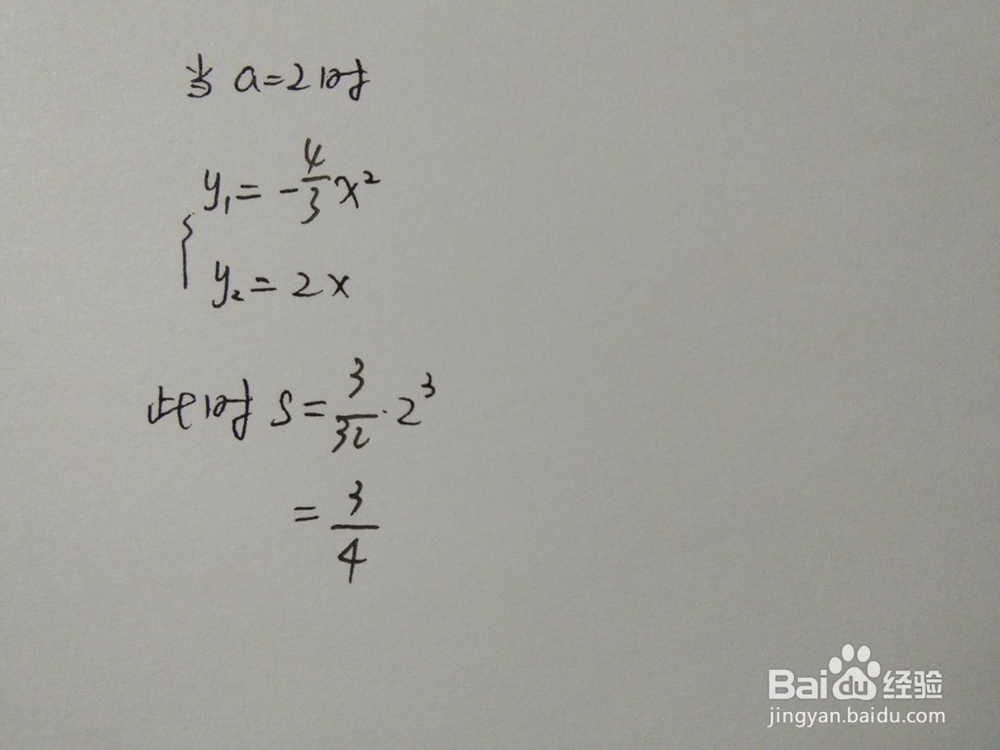 当 a=2时
y₁=-4/3x²
{
y₂=2x
此时 S=3/32·2³
=3/4
Baidu经验
jingyan.baidu.com